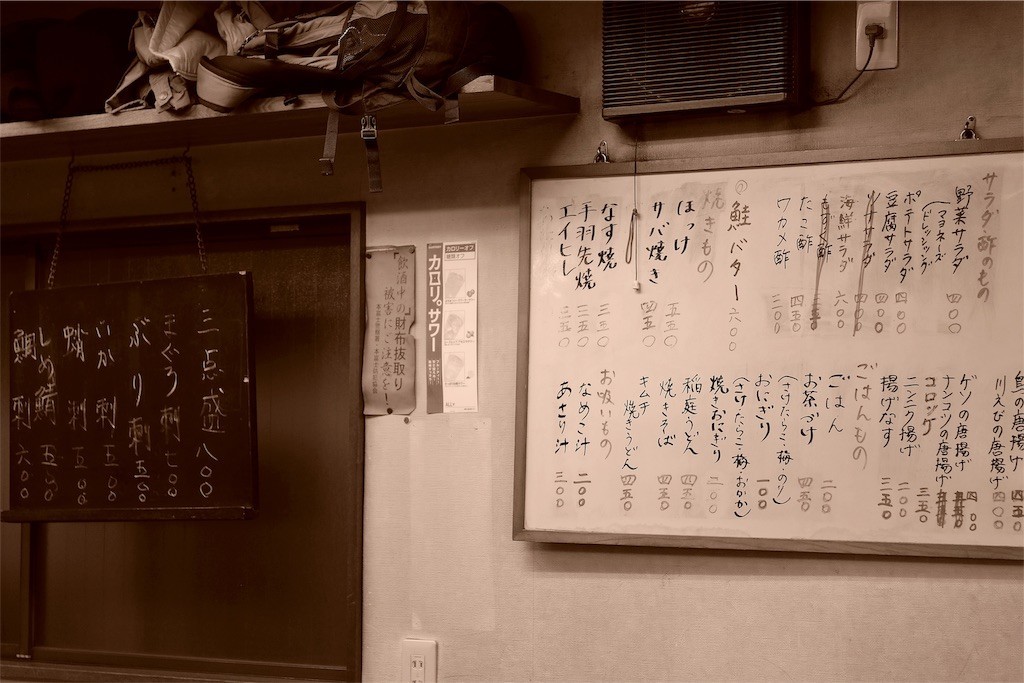 三点盛 八〇〇
まぐろ刺 七〇〇
ぶり刺 五五〇
いか刺 五〇〇
蛸刺 五五〇
しめ鯖 五五〇
鯛刺 六〇〇
飲酒中の財布抜取り
被害にご注意を!
カロリーオフ
カロリ。サワー
サラダ酢のもの
野菜サラダ 四〇〇
(マヨネーズ
ドレッシング)
ポテトサラダ 四〇〇
豆腐サラダ 四〇〇
海鮮サラダ 六〇〇
もずく酢
たこ酢 四五〇
ワカメ酢 三〇〇
の鮭バター 六〇〇
焼きもの
ほっけ 五五〇
サバ焼き 四五〇
なす焼 三五〇
手羽先焼 三五〇
エイヒレ 三五〇
魚の唐揚げ 四五〇
川えびの唐揚げ 四〇〇
ゲソの唐揚げ 四〇〇
ナンコツの唐揚げ
コロッケ 三五〇
ニンニク揚げ 三〇〇
揚げなす 三五〇
ごはんもの
ごはん 二〇〇
お茶づけ 四五〇
(さけ・たらこ・梅・のり)
おにぎり 一〇〇
(さけ・たらこ・梅・おかか)
焼きおにぎり 二〇〇
稲庭うどん 四五〇
焼きそば 四五〇
キムチ
焼きうどん 四五〇
お吸いもの
なめこ汁 二〇〇
あさり汁 三〇〇